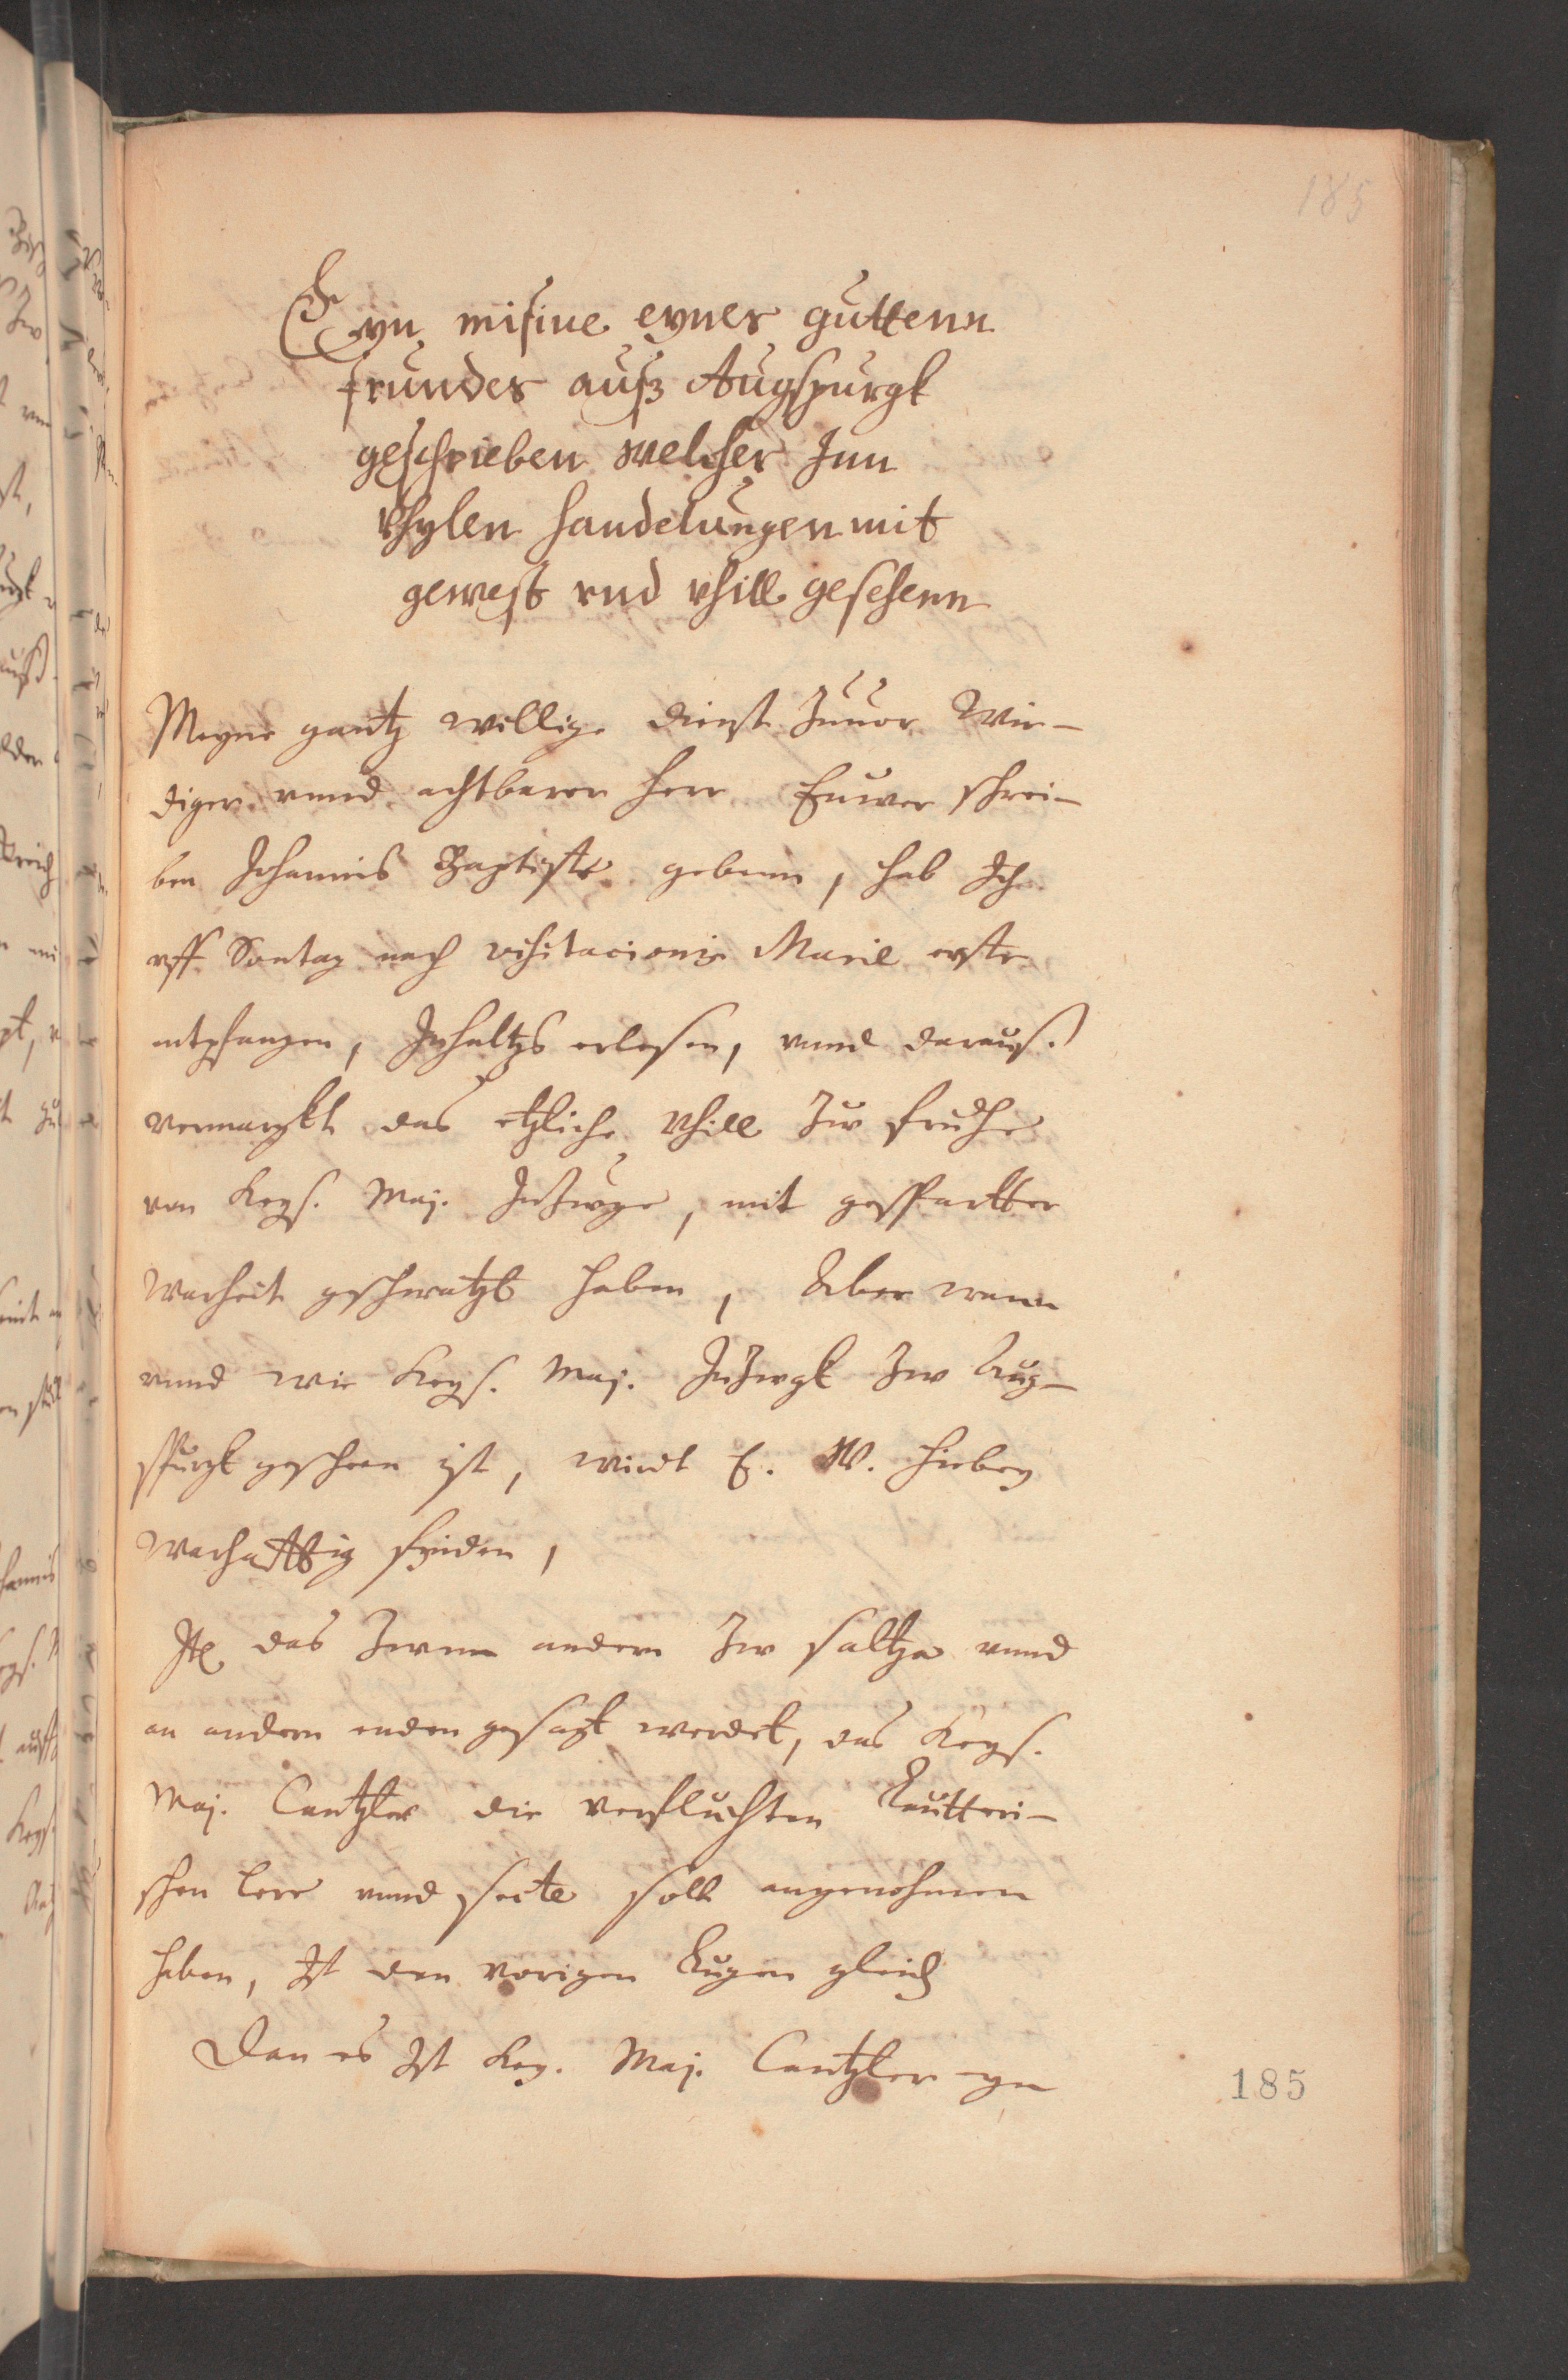 185
Eyn misiue eynes guttenn
frundes auß Augspurgk
geschrieben welcher Inn
vhylen handelungen mit
gewest vnd vhill gesehenn
Meyne gantz willige dienst Zuuor Wir-
diger vnnd achtbarer Herr Euwer schrei-
ben Johannis Baptiste gebenn, hab Ich
vff Sontag nach visitacionis Marie erste
entpfangen, Inhaltzs erlesen, vnnd darauß
vermargkt das etzliche vhill Zw fruhe
von Keys. Maj. Inzuge, mit gespartter
Warheit geschwatzt haben, Aber wenn
vnnd wie Keys. Maj. Inzugk Zw Aug-
spurgk gescheen ist, wirdt E. W. hiebey
warhafftig fynden,
Ite das Zwm andern Zw Saltza vnnd
an andern enden gesagt werdet, das Keys.
Maj. Cantzler die verfluchten Lutteri-
schen lere vnnd secte solt angenohmen
haben, Ist den vorigen Lugen gleich
Dan es Ist Key. Maj. Cantzler eyn
185